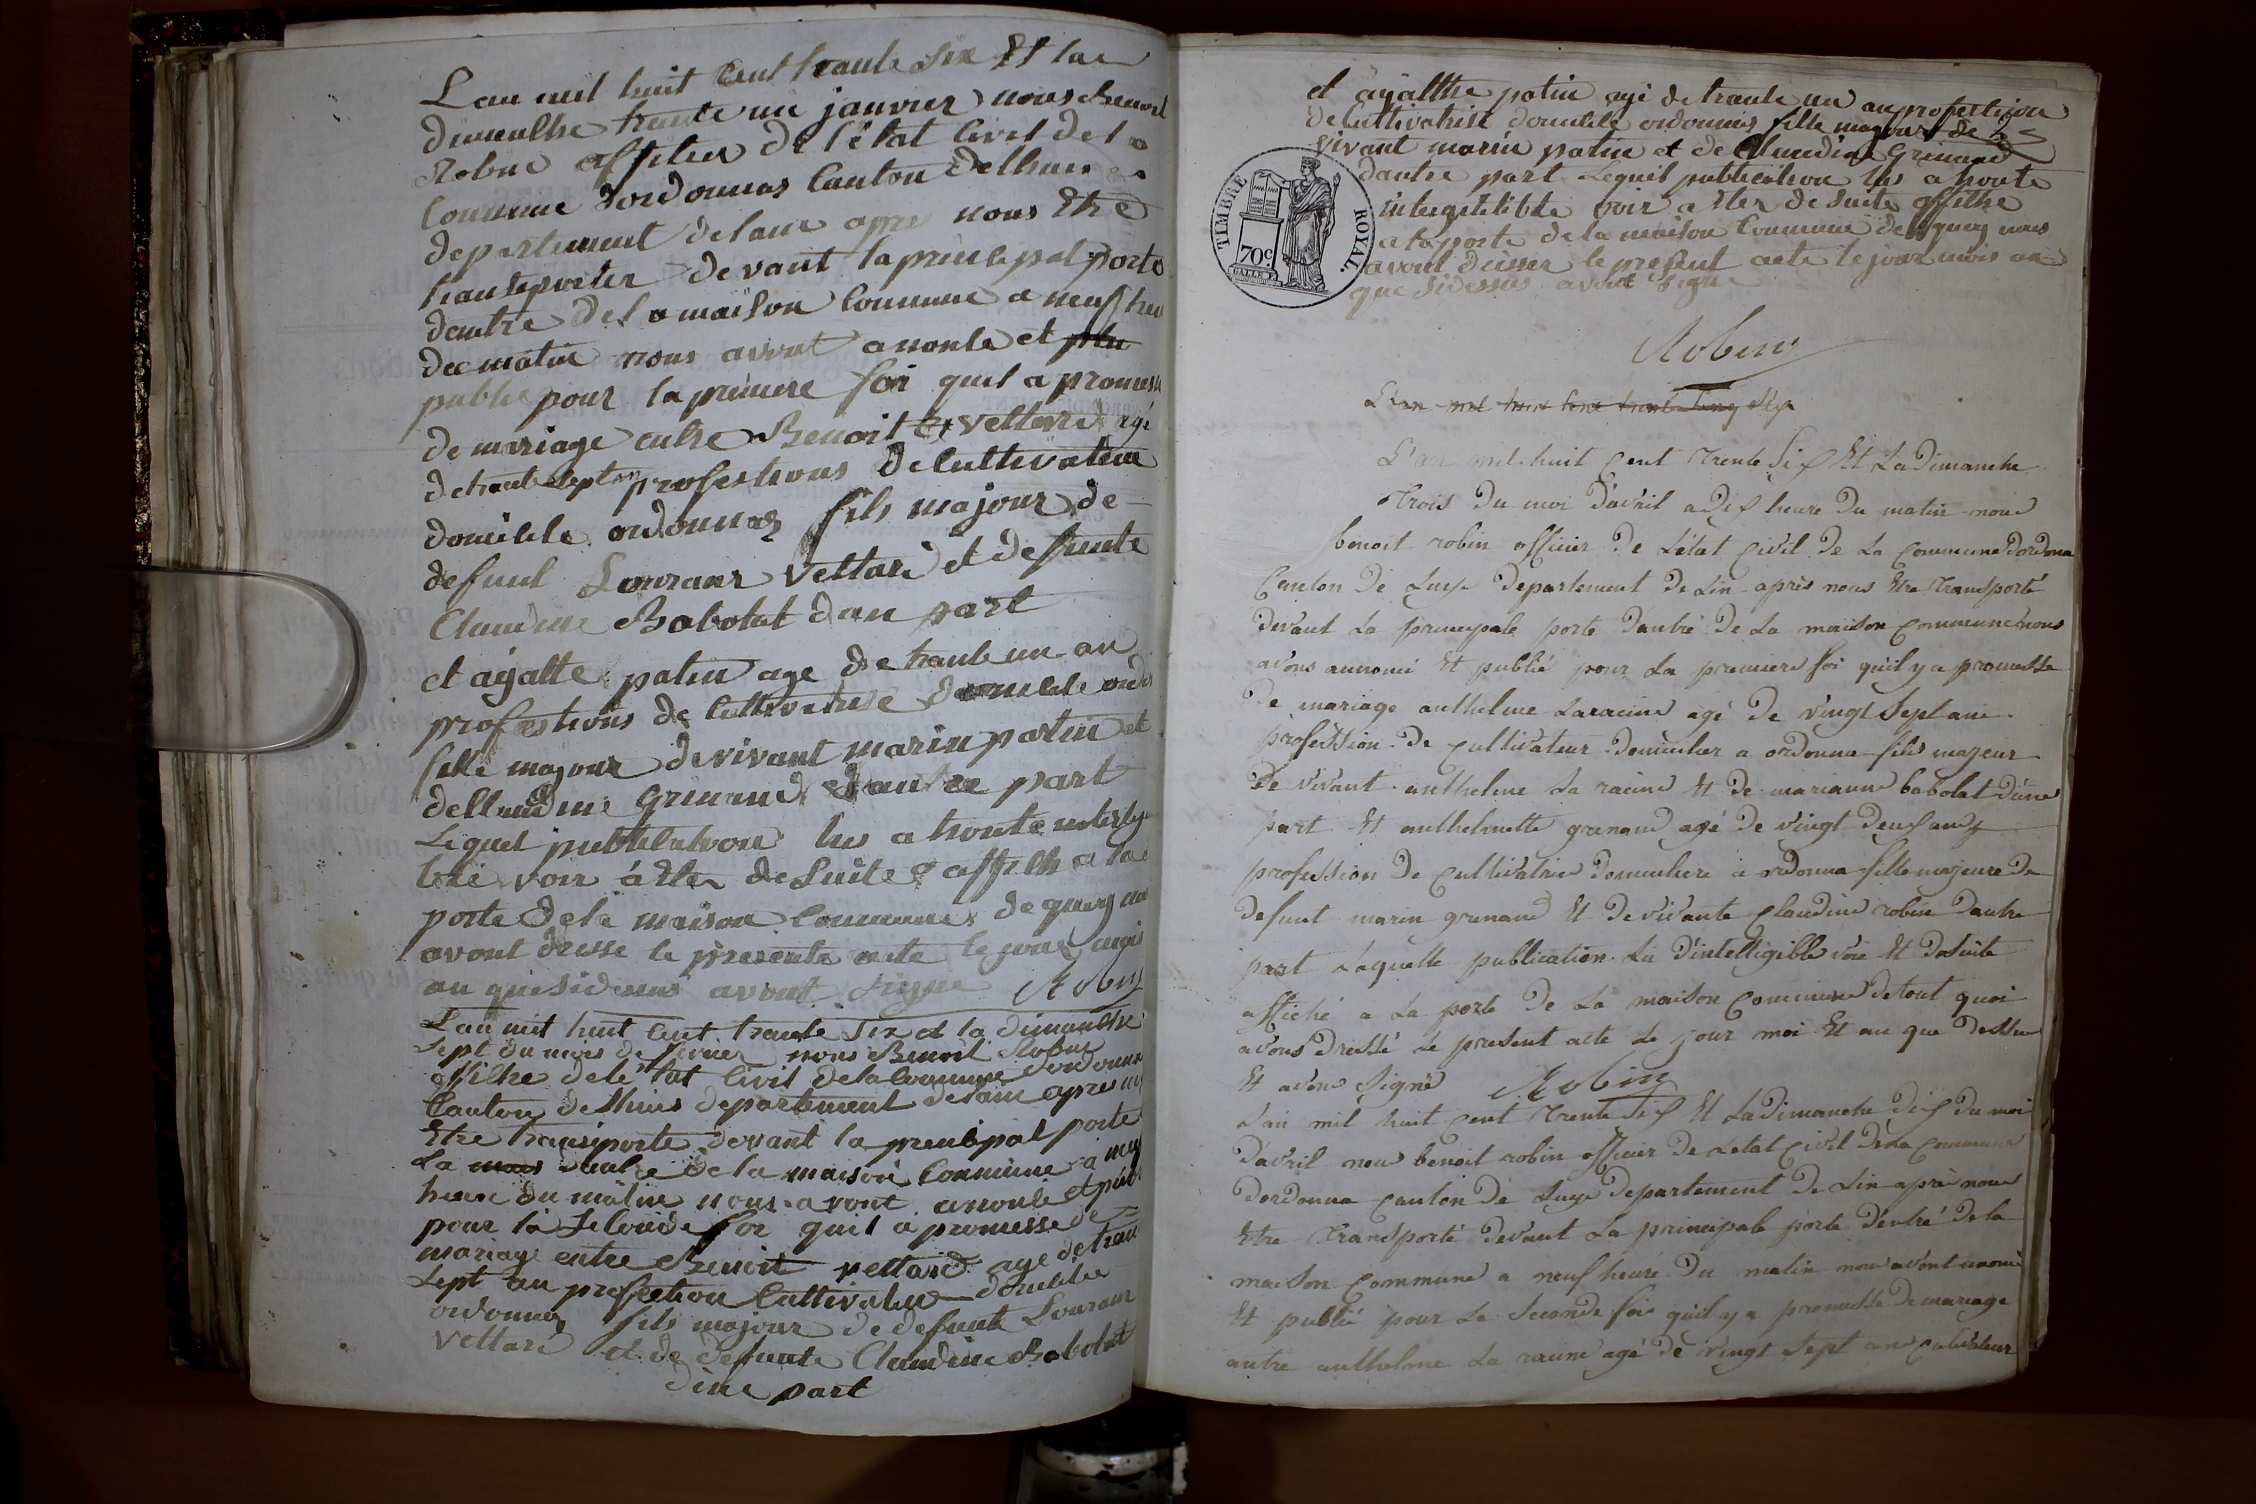 Lan mil huit Cent trante Six Et la
dimanche trante un janvier nous Benoit
Robin officier de l'état Civil de la
Commune dordonnas Canton delhuis
departement delain apre nous Etre
transeporter devant la principal porte
dantre dela maison Commune a neuf heu
dec matin nous avont anonce et plu
publie pour la premiere foi quil a promes
de mariage entre Benoit vettard agé
detrante Sept an professtions deCultivateur
domicile ordonnas fils majour de
defunt Louranr Vettard et defunte
Claudine Babolat dun part
et agatte patin age de trante un an
professtions de Cultivatrise domicile ord
fille majour de vivant marin patin et
deClaudine Grinand dautre part
Lequel publication lus a haute intelige
bile voix a Eter de Suite affich a la
porte dela maison Commune de quoy nou
avont dresse le presente acte le jour mois
an que sidessus avont signe Robin
Lan mil huit Cent trante Six et la dimanche
Sept du mois de fevrier nous Benoit Robin
officie delé tat Civil dela Commune dordonnas
Canton delhuis departement delain apres nou
Etre transporte devant la principal porte
La mais dantre de la maison Commune a neuf
heure du matin nous avont anonce et publ
pour la Seconde foi quil a promesse de
mariag entre Benoit vettard age de tran
Sept an profection Cultivateur domicilie
ordonnas fils majour de defunte Louranr
Vettard et de defunte Claudine Babolat
dune part
et agatthe patin agé de trante un an profesttion
deCultivatrise domicile ordonnas fille majour de
vivant marin patin et de Claudine Grinand
dautre part Lequel publication lus a houte
inteligiblible voix a Eter de Suite affithe
a la porte de la maison Commune de quoy nous
avont drisser le present acte le jour mois an
que sidessus avont Signe
TIMBRE ROYAL.
70c
Robin
L'an mil huit cent trente Six
L'an mil huit cent trente Six Et La Dimanche
trois du moi d'avril a dix heure du matin nous
benoit robin officier de L'état civil de La Commune dordonna
Canton de Luys departement de Lin après nous Etre transporté
devant La principale porte dantré de La maison commune nous
avons annoncé Et publié pour La premiere foi quil y a promesse
de mariage anthelme Laracine agé de vingt Sept ans
profession de cultivateur domicilier a ordonna fils majeur
de vivant anthelme La racine Et de marianne babolat d'une
part Et anthelmette grinand agé de vingt deux ans
profession de cultivatrice domiciliere a ordonna fille majeure de
defunt marin grinand Et de vivante claudine robin dautre
part Laquelle publication Lu d'intelligible voie Et de Suite
affiché a La porte de La maison commune de tout quoi
avons dressé Le present acte Le jour moi Et an que dessus
Et avons Signé Robin
L'an mil huit cent trente Six Et La Dimanche dix du moi
d'avril nous benoit robin officier de Letat civil de La Commune
dordonna canton de Luys departement de Lin après nous
Etre transporté devant La principale porte d'entré de la
maison commune a neuf heure du matin nous avont anoncé
Et publié pour La Seconde fois quil y a promesse de mariage
antre anthelme La racine agé de vingt Sept ans cultivateur